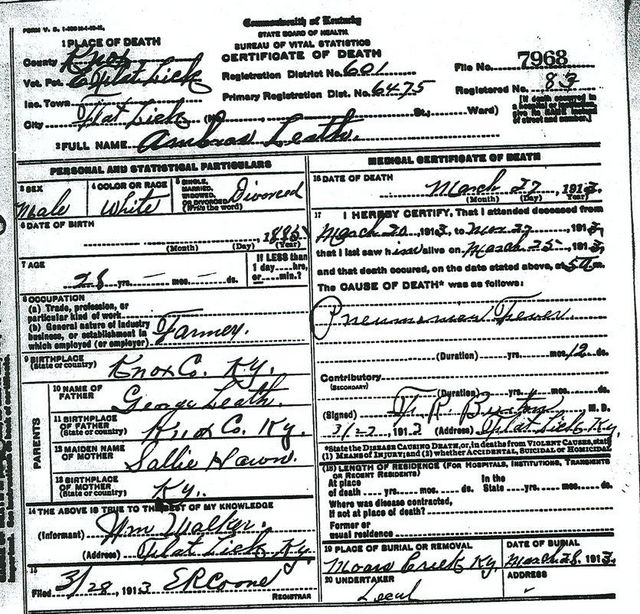 Commonwealth of Kentucky
STATE BOARD OF HEALTH
BUREAU OF VITAL STATISTICS
CERTIFICATE OF DEATH
1 PLACE OF DEATH
County Knox
Vot. Pct. 6 Flat Lick
Inc. Town
City Flat Lick (No. St., Ward)
Registration District No. 601
Primary Registration Dist. No. 6475
File No. 7968
Registered No. 83
[If death occurred in a hospital or institution, give its NAME instead of street and number.]
2 FULL NAME Ambros Leath.
PERSONAL AND STATISTICAL PARTICULARS
3 SEX Male
4 COLOR OR RACE White
5 SINGLE, MARRIED, WIDOWED, OR DIVORCED (Write the word) Divorced
6 DATE OF BIRTH
1885
(Month) (Day) (Year)
7 AGE
28 yrs. — mos. — ds.
If LESS than 1 day ... hrs. or ... min.?
8 OCCUPATION
(a) Trade, profession, or particular kind of work
(b) General nature of industry business, or establishment in which employed (or employer) Farmer.
9 BIRTHPLACE (State or country) Knox Co. Ky.
PARENTS
10 NAME OF FATHER George Leath.
11 BIRTHPLACE OF FATHER (State or country) Knox Co. Ky.
12 MAIDEN NAME OF MOTHER Sallie
13 BIRTHPLACE OF MOTHER (State or country) Ky.
14 THE ABOVE IS TRUE TO THE BEST OF MY KNOWLEDGE
(Informant) Wm Walker.
(Address) Flat Lick Ky.
15
Filed 3/28, 1913 E R Coone
REGISTRAR
MEDICAL CERTIFICATE OF DEATH
16 DATE OF DEATH
March 27, 1913.
(Month) (Day) (Year)
17 I HEREBY CERTIFY, That I attended deceased from
March 20 1913, to Mar 27, 1913,
that I last saw him alive on March 25, 1913,
and that death occured, on the date stated above, at m.
The CAUSE OF DEATH* was as follows:
Fever
(Duration) yrs. mos. 12 ds.
Contributory
(SECONDARY)
(Duration) yrs. mos. ds.
(Signed) M. D.
1913 (Address) Flat Lick Ky.
*State the DISEASE CAUSING DEATH, or, in deaths from VIOLENT CAUSES, state (1) MEANS OF INJURY; and (2) whether ACCIDENTAL, SUICIDAL or HOMICIDAL
(18) LENGTH OF RESIDENCE (FOR HOSPITALS, INSTITUTIONS, TRANSIENTS OR RECENT RESIDENTS)
At place of death yrs. mos. ds. In the State yrs. mos. ds.
Where was disease contracted, If not at place of death?
Former or usual residence
19 PLACE OF BURIAL OR REMOVAL
Moors Creek Ky
DATE OF BURIAL
March 28, 1913.
20 UNDERTAKER
Local
ADDRESS